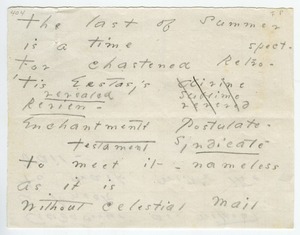 404
The last of Summer
is a time
spect-
for chastened Retro-
'Tis Ecstasy's divine
revealed Sublime
Review - revered
Enchantment's Postulate -
Testament Syndicate
To meet it - nameless
as it is
Without celestial Mail